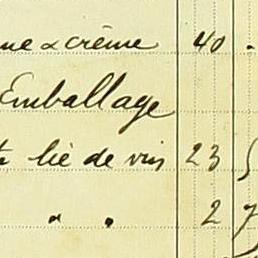 & crème 40 -
Emballage
lie de vin 23 5
" " 2 7